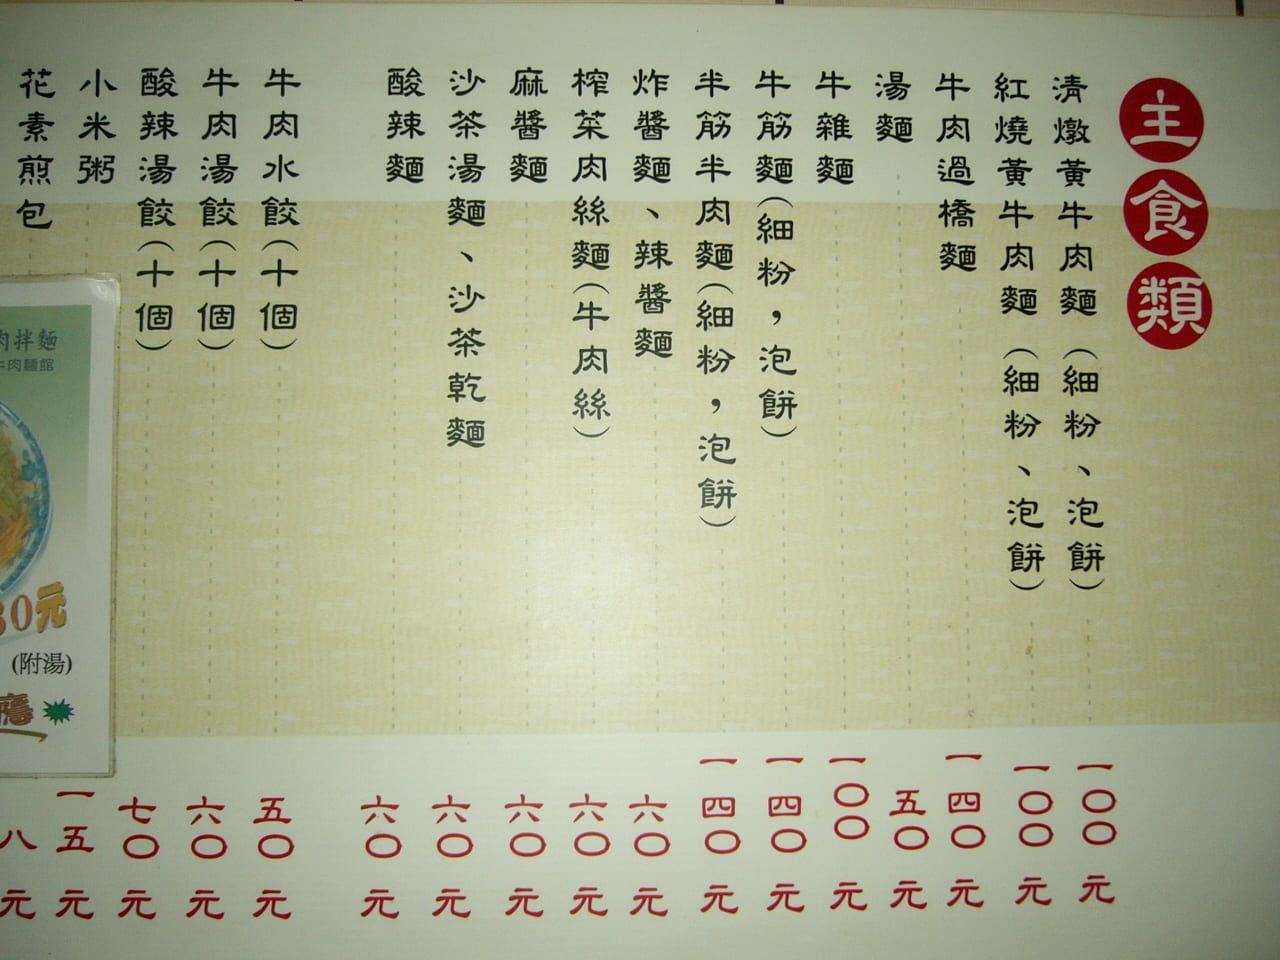 主食類
清燉黃牛肉麵（細粉、泡餅） 一〇〇元
紅燒黃牛肉麵（細粉、泡餅） 一〇〇元
牛肉過橋麵 一四〇元
湯麵 五〇元
牛雜麵 一〇〇元
牛筋麵（細粉，泡餅） 一四〇元
半筋半肉麵（細粉，泡餅） 一四〇元
炸醬麵、辣醬麵 六〇元
榨菜肉絲麵（牛肉絲） 六〇元
麻醬麵 六〇元
沙茶湯麵、沙茶乾麵 六〇元
酸辣麵 六〇元
牛肉水餃（十個） 五〇元
牛肉湯餃（十個） 六〇元
酸辣湯餃（十個） 七〇元
小米粥 一五元
花素煎包 八元
肉拌麵
牛肉麵館
80元
(附湯)